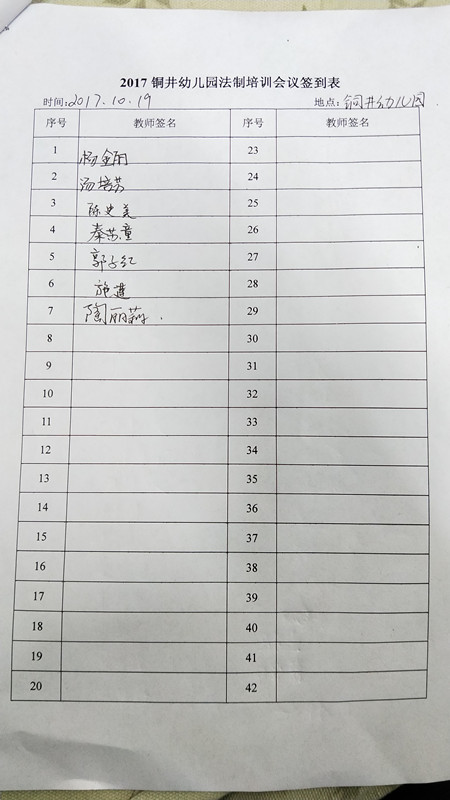 2017 铜井幼儿园法制培训会议签到表
时间:2017.10.19 地点:铜井幼儿园.
序号 教师签名 序号 教师签名
1 杨金丽 23
2 汤培芳 24
3 陈史美 25
4 秦苏童 26
5 郭子红 27
6 施莲 28
7 陶丽莉. 29
8 30
9 31
10 32
11 33
12 34
13 35
14 36
15 37
16 38
17 39
18 40
19 41
20 42